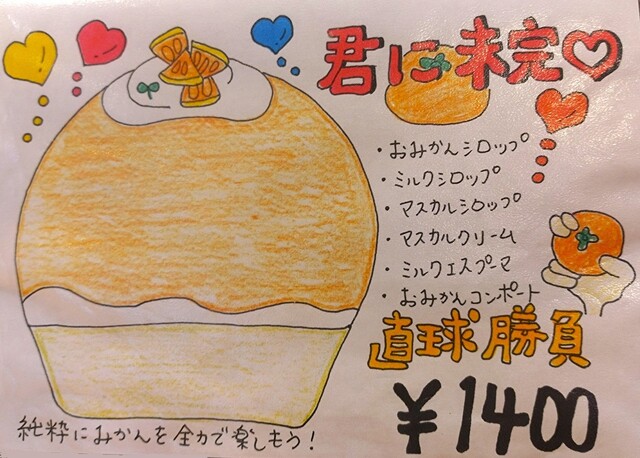 君に未完♡
・おみかんシロップ
・ミルクシロップ
・マスカルシロップ
・マスカルクリーム
・ミルクエスプーマ
・おみかんコンポート
直球勝負
¥1400
純粋にみかんを全力で楽しもう!